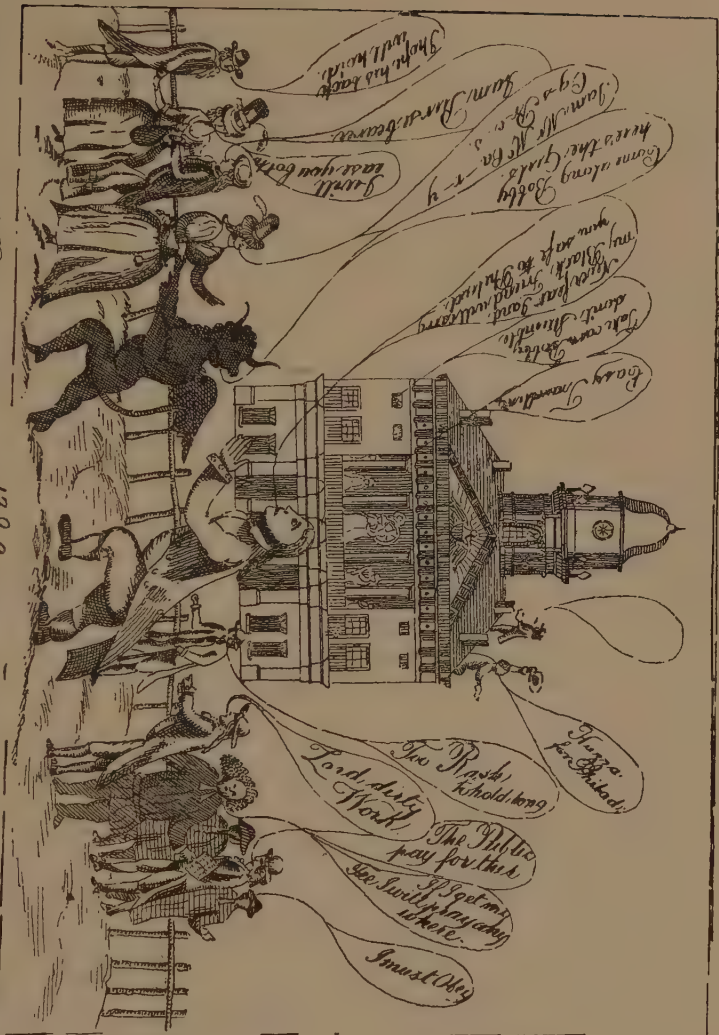 I hope his back
will hold
I am
I will
ease you both
I am Mrs
Come along Bobby
here's the Girls
Never fear
my Black Friend will carry
you safe to Philad.
Take care Bobby
dont Stumble
Easy Travelling
Huzza
for Philad.
Too Rash,
hold long
Lord, dirty
Work
The Public
pay for this
If I get my
fee I will pray any
where
I must Obey